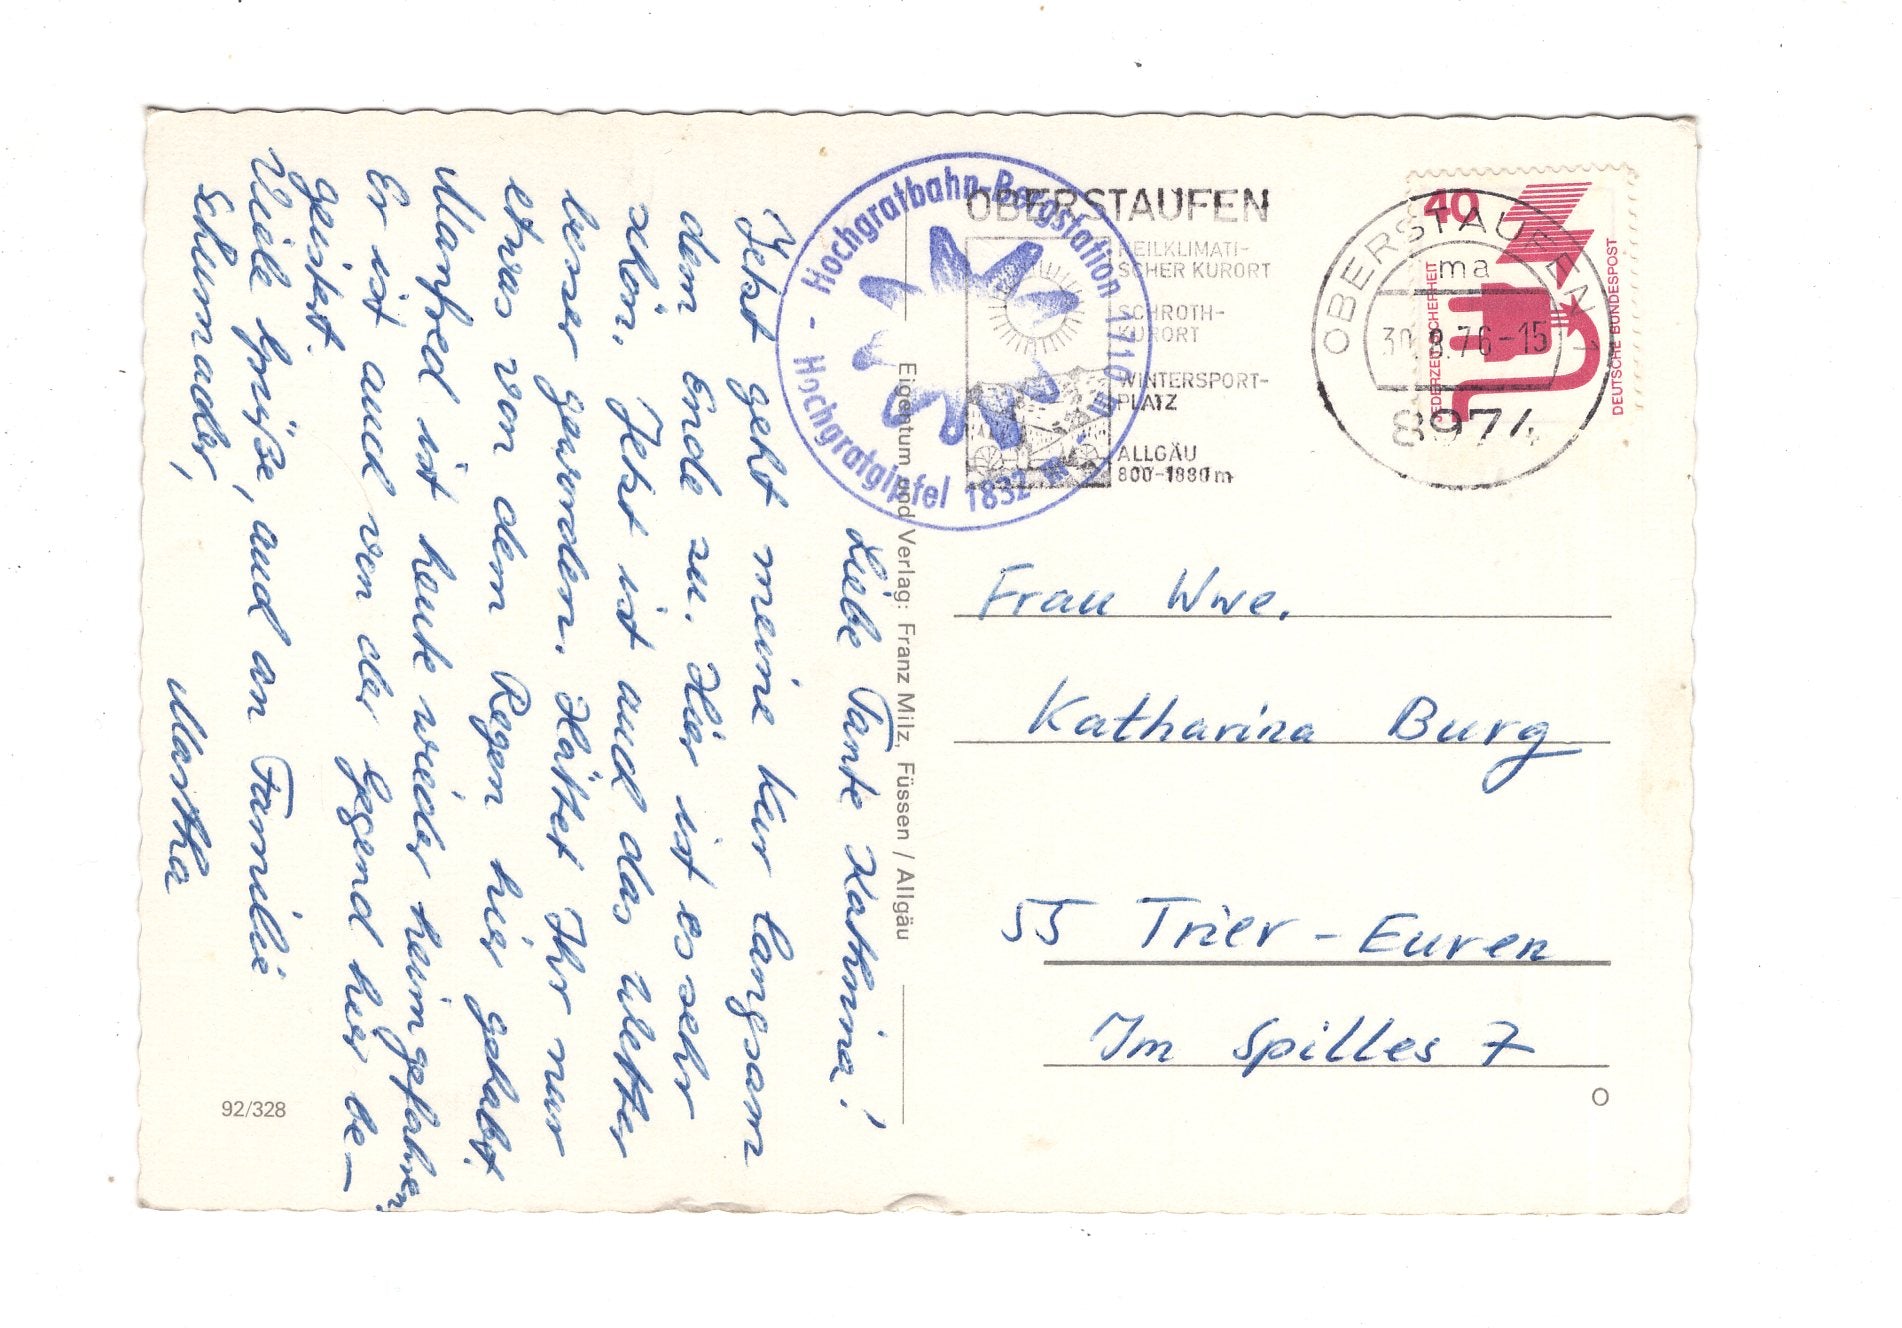 Liebe Tante Kathrina!
Jetzt geht meine Kur langsam
dem Ende zu. Hier ist es sehr
schön. Jetzt ist auch das Wetter
besser geworden. Hättet Ihr nur
etwas von dem Regen hier gehabt.
Manfred ist heute wieder heimgefahren.
Er ist auch von der Gegend hier be-
geistert.
Viele Grüße, auch an Familie
Schumacher,
Martha
92/328
Eigentum und Verlag: Franz Milz, Füssen / Allgäu
Hochgratbahn-Bergstation 1710 m
- Hochgratgipfel 1832 m -
OBERSTAUFEN
HEILKLIMATI-
SCHER KURORT
SCHROTH-
KURORT
WINTERSPORT-
PLATZ
ALLGÄU
800-1880 m
OBERSTAUFEN 1
ma
30.8.76-15
8974
40
JEDERZEIT SICHERHEIT
DEUTSCHE BUNDESPOST
Frau Wwe.
Katharina Burg
55 Trier - Euren
Im Spilles 7